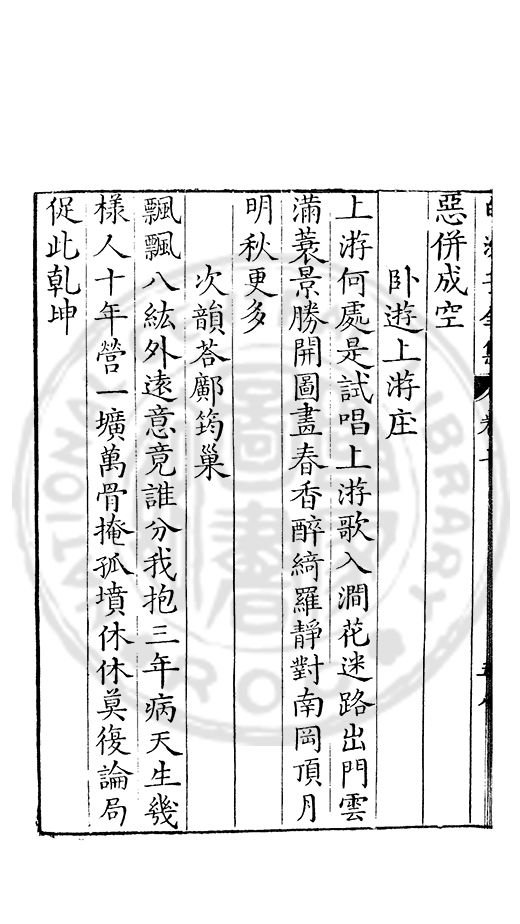 惡併成空
卧遊上游庄
上游何處是試唱上游歌入澗花迷路出門雲
滿蓑景勝開圖畫春香醉綺羅靜對南岡頂月
明秋更多
次韻荅鄺筠巢
飄飄八紘外遠意竟誰分我抱三年病天生幾
樣人十年營一壙萬骨掩孤墳休休莫復論局
促此乾坤